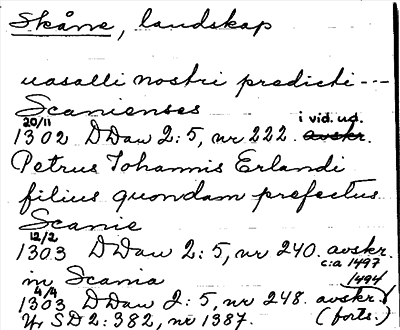 Skåne, landskap
uasalli nostri predicti ---
Scanienses
20/11 i vid. ud.
1302 DDan 2:5, nr 222. avskr.
Petrus Iohannis Erlandi
filius quondam prefectus
Scanie
12/2
1303 DDan 2:5, nr 240. avskr.
c:a 1497
in Scania 1494
4/4
1303 DDan 2:5, nr 248. avskr.
Tr. SD 2:382, nr 1387. (forts.)